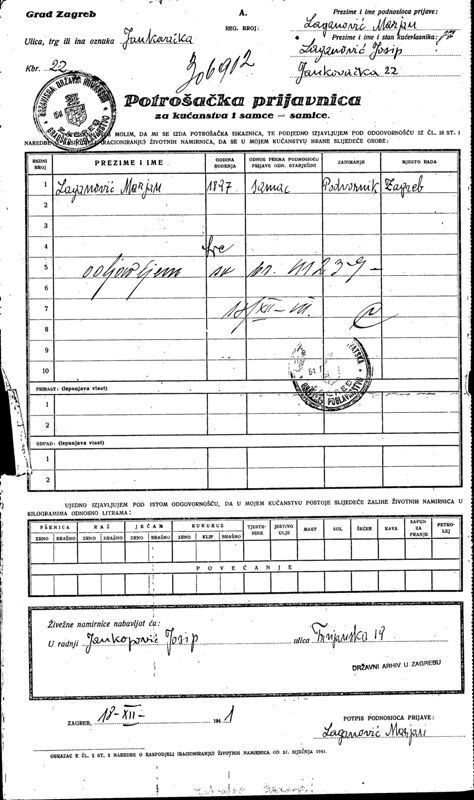 Grad Zagreb
A.
REG. BROJ:
Prezime i ime podnosioca prijave:
Laganović Marjan
Ulica, trg ili ina oznaka Jankovačka
Prezime i ime i stan kućevlasnika:
Laganović Josip
Kbr. 22
Jankovačka 22
Potrošačka prijavnica
za kućanstva i samce — samice.
MOLIM, DA MI SE IZDA POTROŠAČKA ISKAZNICA, TE PODJEDNO IZJAVLJUJEM POD ODGOVORNOŠĆU IZ ČL. 18 ST. 1
NAREDBE (RACIONIRANJU) ŽIVOTNIH NAMIRNICA, DA SE U MOJEM KUĆANSTVU HRANE SLIJEDEĆE OSOBE:
REDNI BROJ PREZIME I IME GODINA ROĐENJA ODNOS PREMA PODNOSIOCU PRIJAVE ODN. STARJEŠINI ZANIMANJE MJESTO RADA
1 Laganović Marjan 1897 samac Podvornik Zagreb
2
3
4
5
6
7
8
9
10
PRIRAST: (ispunjava vlast)
1
2
OTPAD: (ispunjava vlast)
1
2
UJEDNO IZJAVLJUJEM POD ISTOM ODGOVORNOŠĆU, DA U MOJEM KUĆANSTVU POSTOJE SLIJEDEĆE ZALIHE ŽIVOTNIH NAMIRNICA U
KILOGRAMIMA ODNOSNO LITRAMA:
PŠENICA RAŽ JEČAM KUKURUZ TJESTENINE JESTIVO ULJE MAST SOL ŠEĆER KAVA SAPUN ZA PRANJE PETROLEJ
ZRNO BRAŠNO ZRNO BRAŠNO ZRNO BRAŠNO ZRNO KLIP BRAŠNO
POVEĆANJE
Živežne namirnice nabavljat ću:
U radnji Jankopović Josip ulica 19
DRŽAVNI ARHIV U ZAGREBU
ZAGREB, 18-XII- 1941
POTPIS PODNOSIOCA PRIJAVE:
Laganović Marjan
OBRAZAC K ČL. 2 ST. 2 NAREDBE O RASPODJELI (RACIONIRANJU) ŽIVOTNIH NAMIRNICA OD 21. SIJEČNJA 1941.